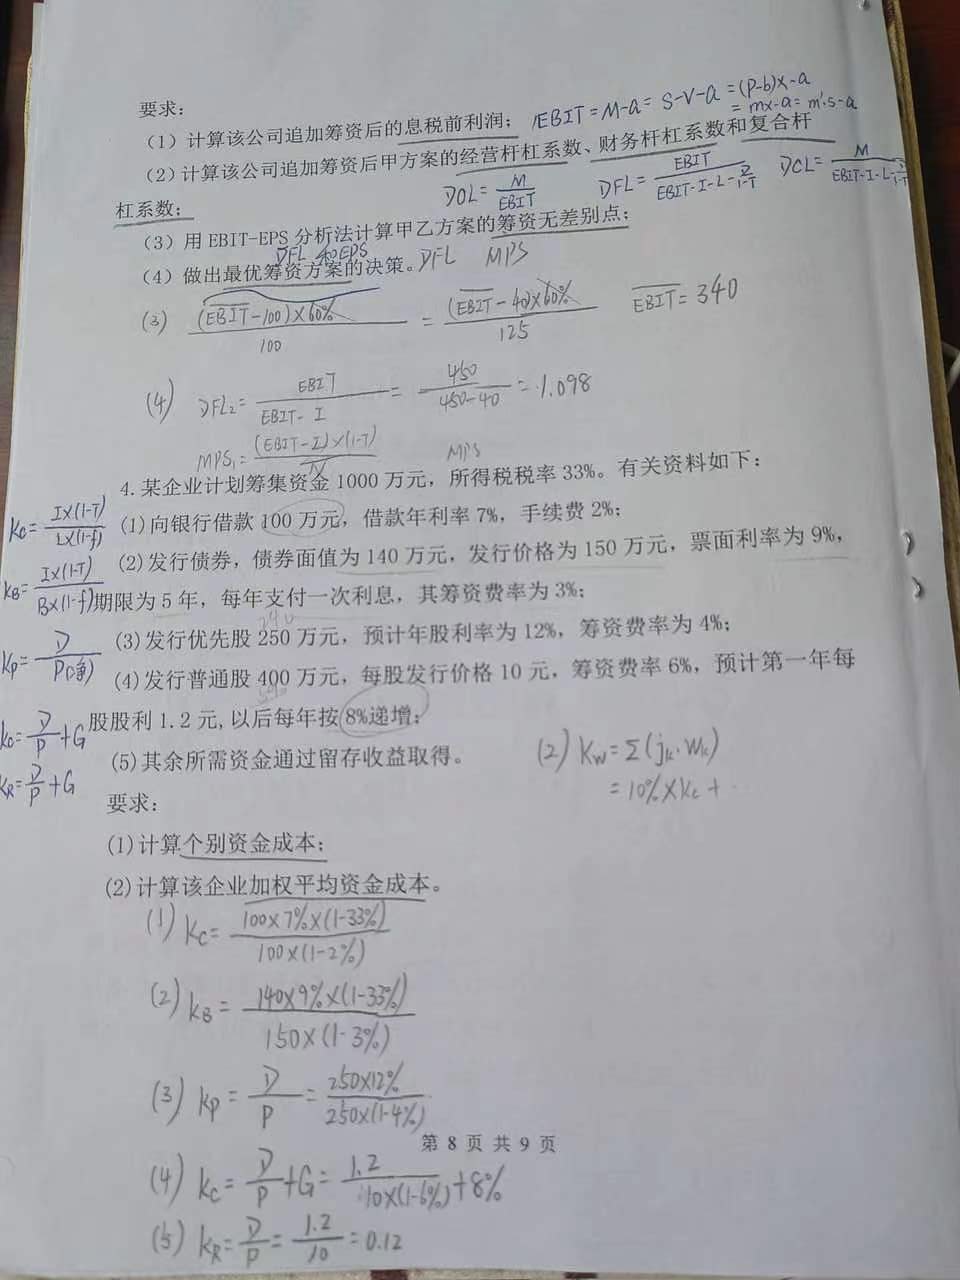 要求：
(1) 计算该公司追加筹资后的息税前利润； EBIT = M-a = S-V-a = (P-b)x-a
= mx-a = m's-a
(2) 计算该公司追加筹资后甲方案的经营杠杆系数、财务杠杆系数和复合杠
杠系数；
DOL = M/EBIT DFL = EBIT/(EBIT-I-L-D/(1-T)) DCL = M/(EBIT-I-L-D/(1-T))
(3) 用 EBIT-EPS 分析法计算甲乙方案的筹资无差别点；
(4) 做出最优筹资方案的决策。DFL MPS
(3) (EBIT-100)×60%/100 = (EBIT-40)×60%/125 EBIT = 340
(4) DFL₂ = EBIT/(EBIT-I) = 450/(450-40) = 1.098
MPS₁ = (EBIT-I)×(1-T)/N MPS
4.某企业计划筹集资金 1000 万元，所得税税率 33%。有关资料如下：
Kc = I×(1-T)/L×(1-f)
(1)向银行借款 100 万元，借款年利率 7%，手续费 2%；
(2)发行债券，债券面值为 140 万元，发行价格为 150 万元，票面利率为 9%，
KB = I×(1-T)/B×(1-f)
期限为 5 年，每年支付一次利息，其筹资费率为 3%；
240
(3)发行优先股 250 万元，预计年股利率为 12%，筹资费率为 4%；
Kp = D/P(净)
(4)发行普通股 400 万元，每股发行价格 10 元，筹资费率 6%，预计第一年每
股股利 1.2 元,以后每年按 8%递增；
Kc = D/P + G
(5)其余所需资金通过留存收益取得。
KR = D/P + G
(2) Kw = Σ(jk·Wk)
= 10%×Kc + ··
要求：
(1)计算个别资金成本；
(2)计算该企业加权平均资金成本。
(1) Kc = 100×7%×(1-33%)/100×(1-2%)
(2) KB = 140×9%×(1-33%)/150×(1-3%)
(3) Kp = D/P = 250×12%/250×(1-4%)
第 8 页 共 9 页
(4) Kc = D/P + G = 1.2/10×(1-6%) + 8%
(5) KR = D/P = 1.2/10 = 0.12